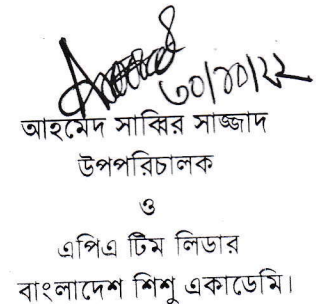 ৩০/১০/২২
আহমেদ সাব্বির সাজ্জাদ
উপপরিচালক
ও
এপিএ টিম লিডার
বাংলাদেশ শিশু একাডেমি।